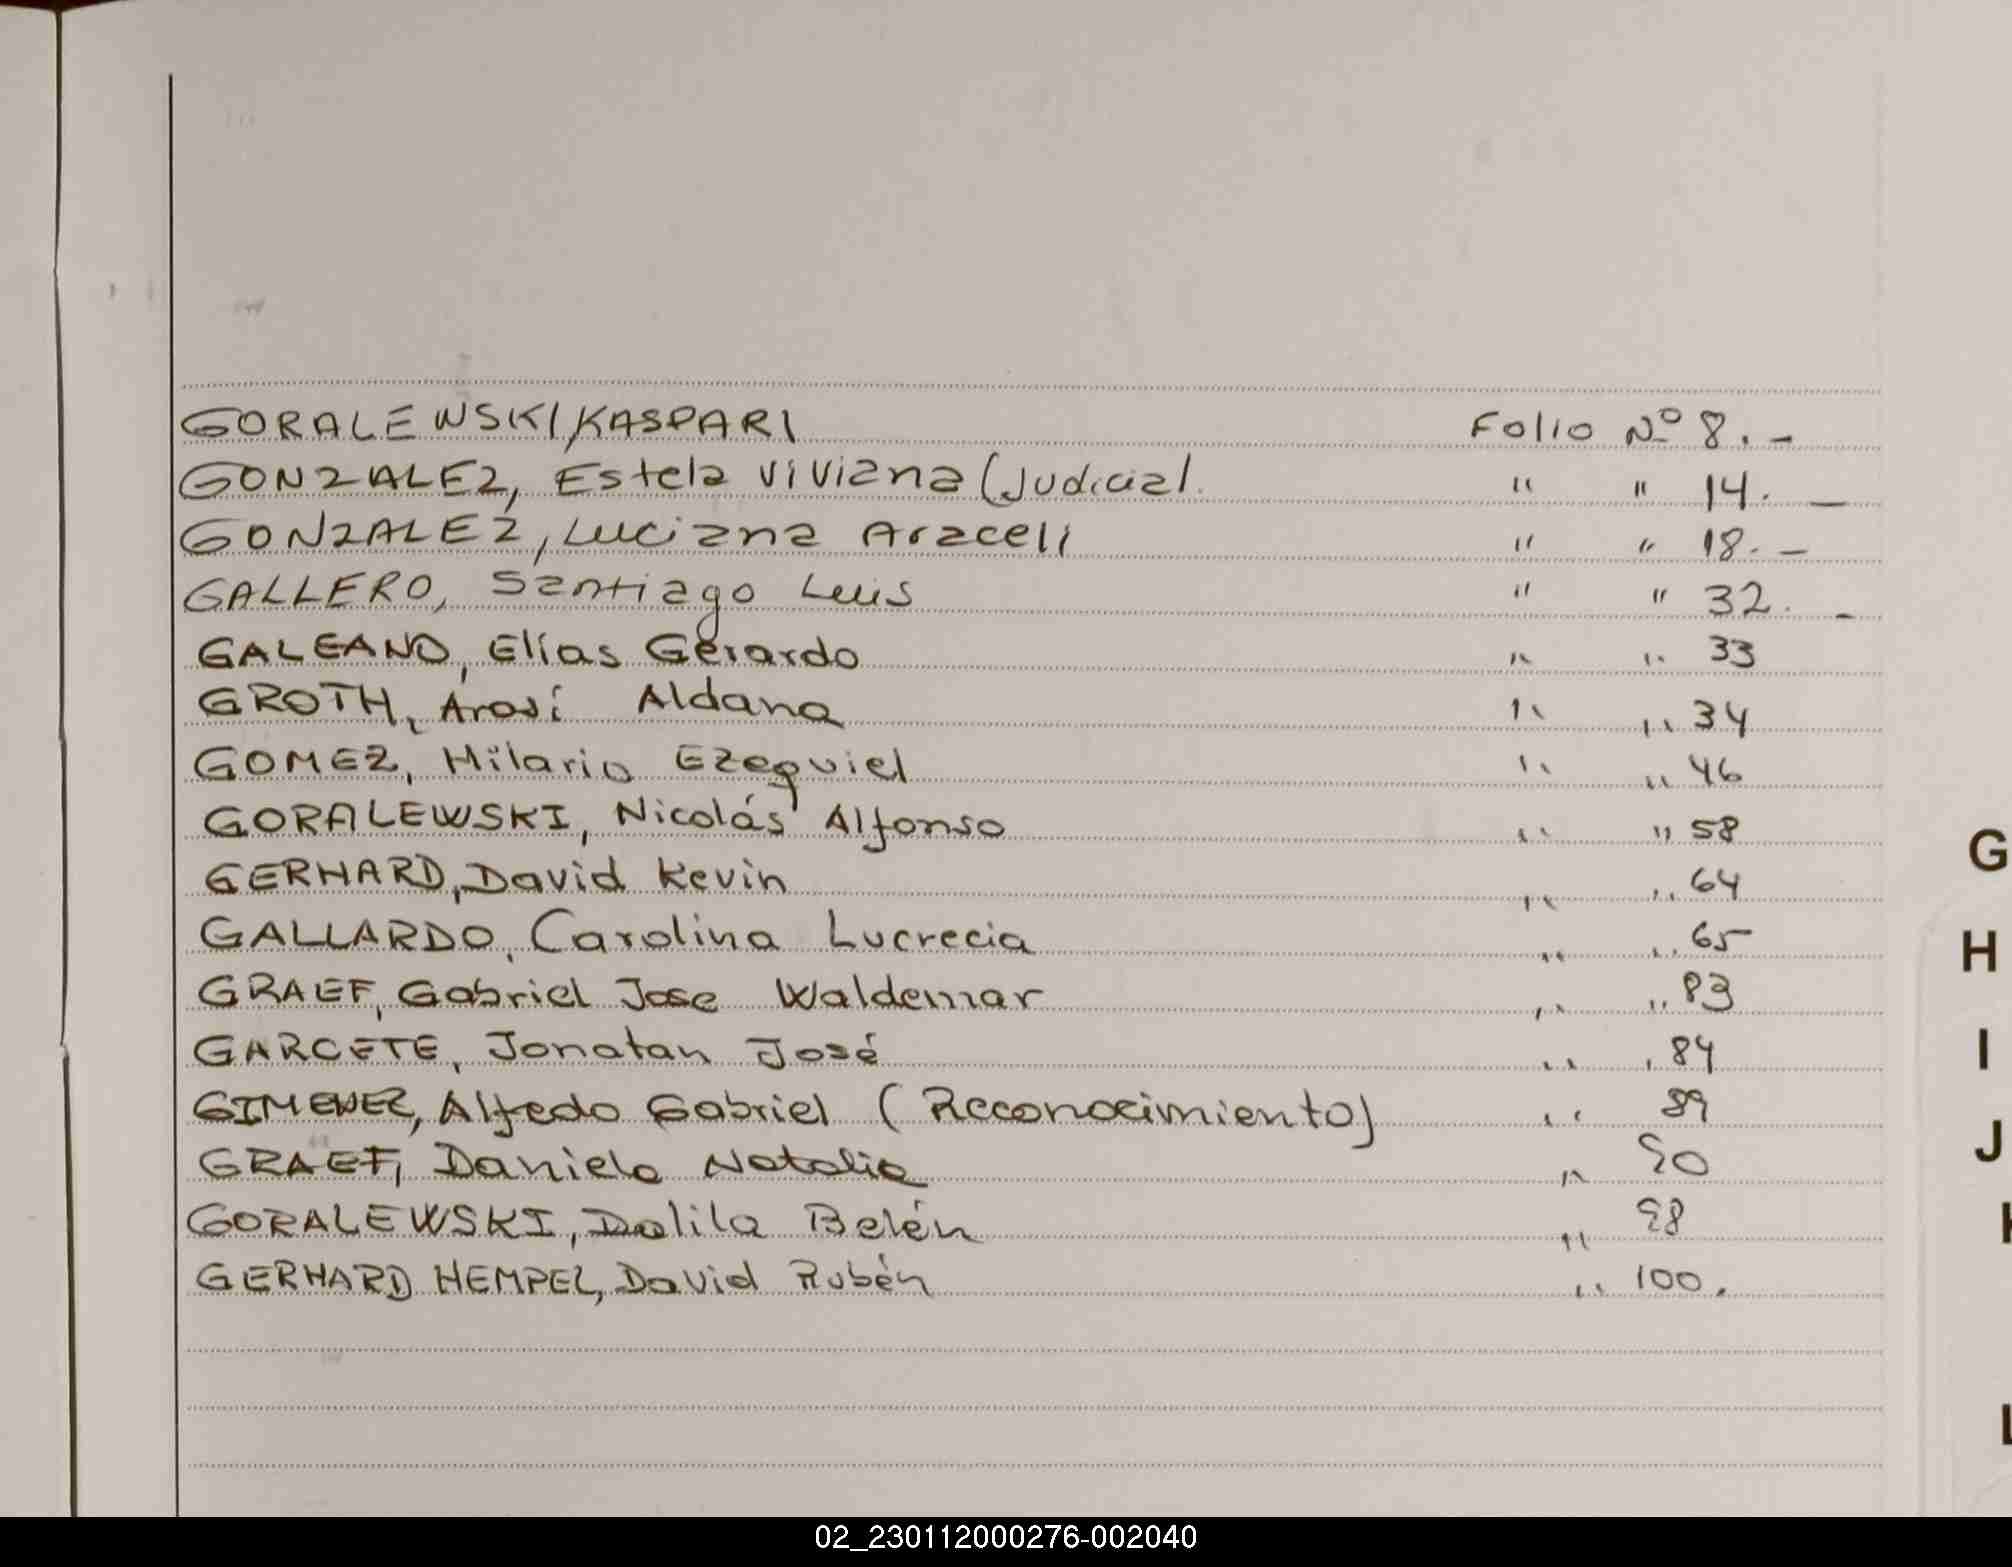 GORALEWSKI/KASPARI Folio Nº 8.-
GONZALEZ, Estela Viviana (Judicial. " " 14. -
GONZALEZ, Luciana Araceli " " 18. -
GALLERO, Santiago Luis " " 32. -
GALEANO, Elías Gerardo " " 33
GROTH, Arasí Aldana " " 34
GOMEZ, Hilario Ezequiel " " 46
GORALEWSKI, Nicolás Alfonso " " 58
GERHARD, David Kevin " " 64
GALLARDO, Carolina Lucrecia " " 65
GRAEF, Gabriel Jose Waldemar " " 83
GARCETE, Jonatan José " " 84
GIMENEZ, Alfedo Gabriel (Reconocimiento) " 89
GRAEF, Daniela Natalia " 90
GORALEWSKI, Dalila Belén " 98
GERHARD HEMPEL, David Rubén " 100.
G
H
I
J
L
02_230112000276-002040